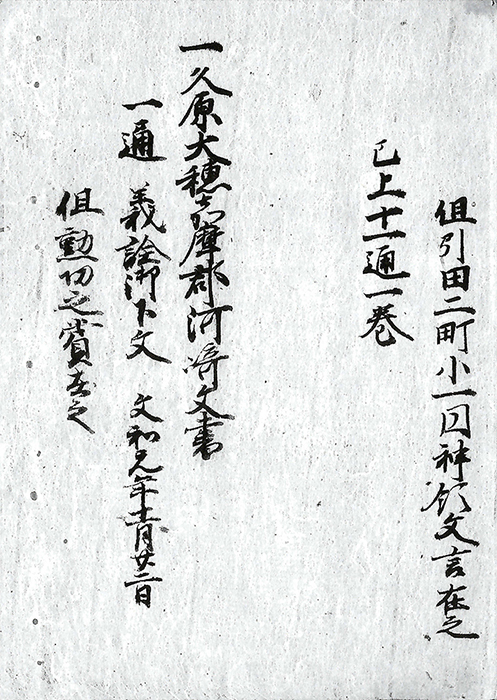 但引田二町小一曰神領文言在之
已上十一通一巻
一久原大穂嘉摩郡河崎文書
一通 義詮御下文 文和元年十二月廿二日
但勲功之賞在之